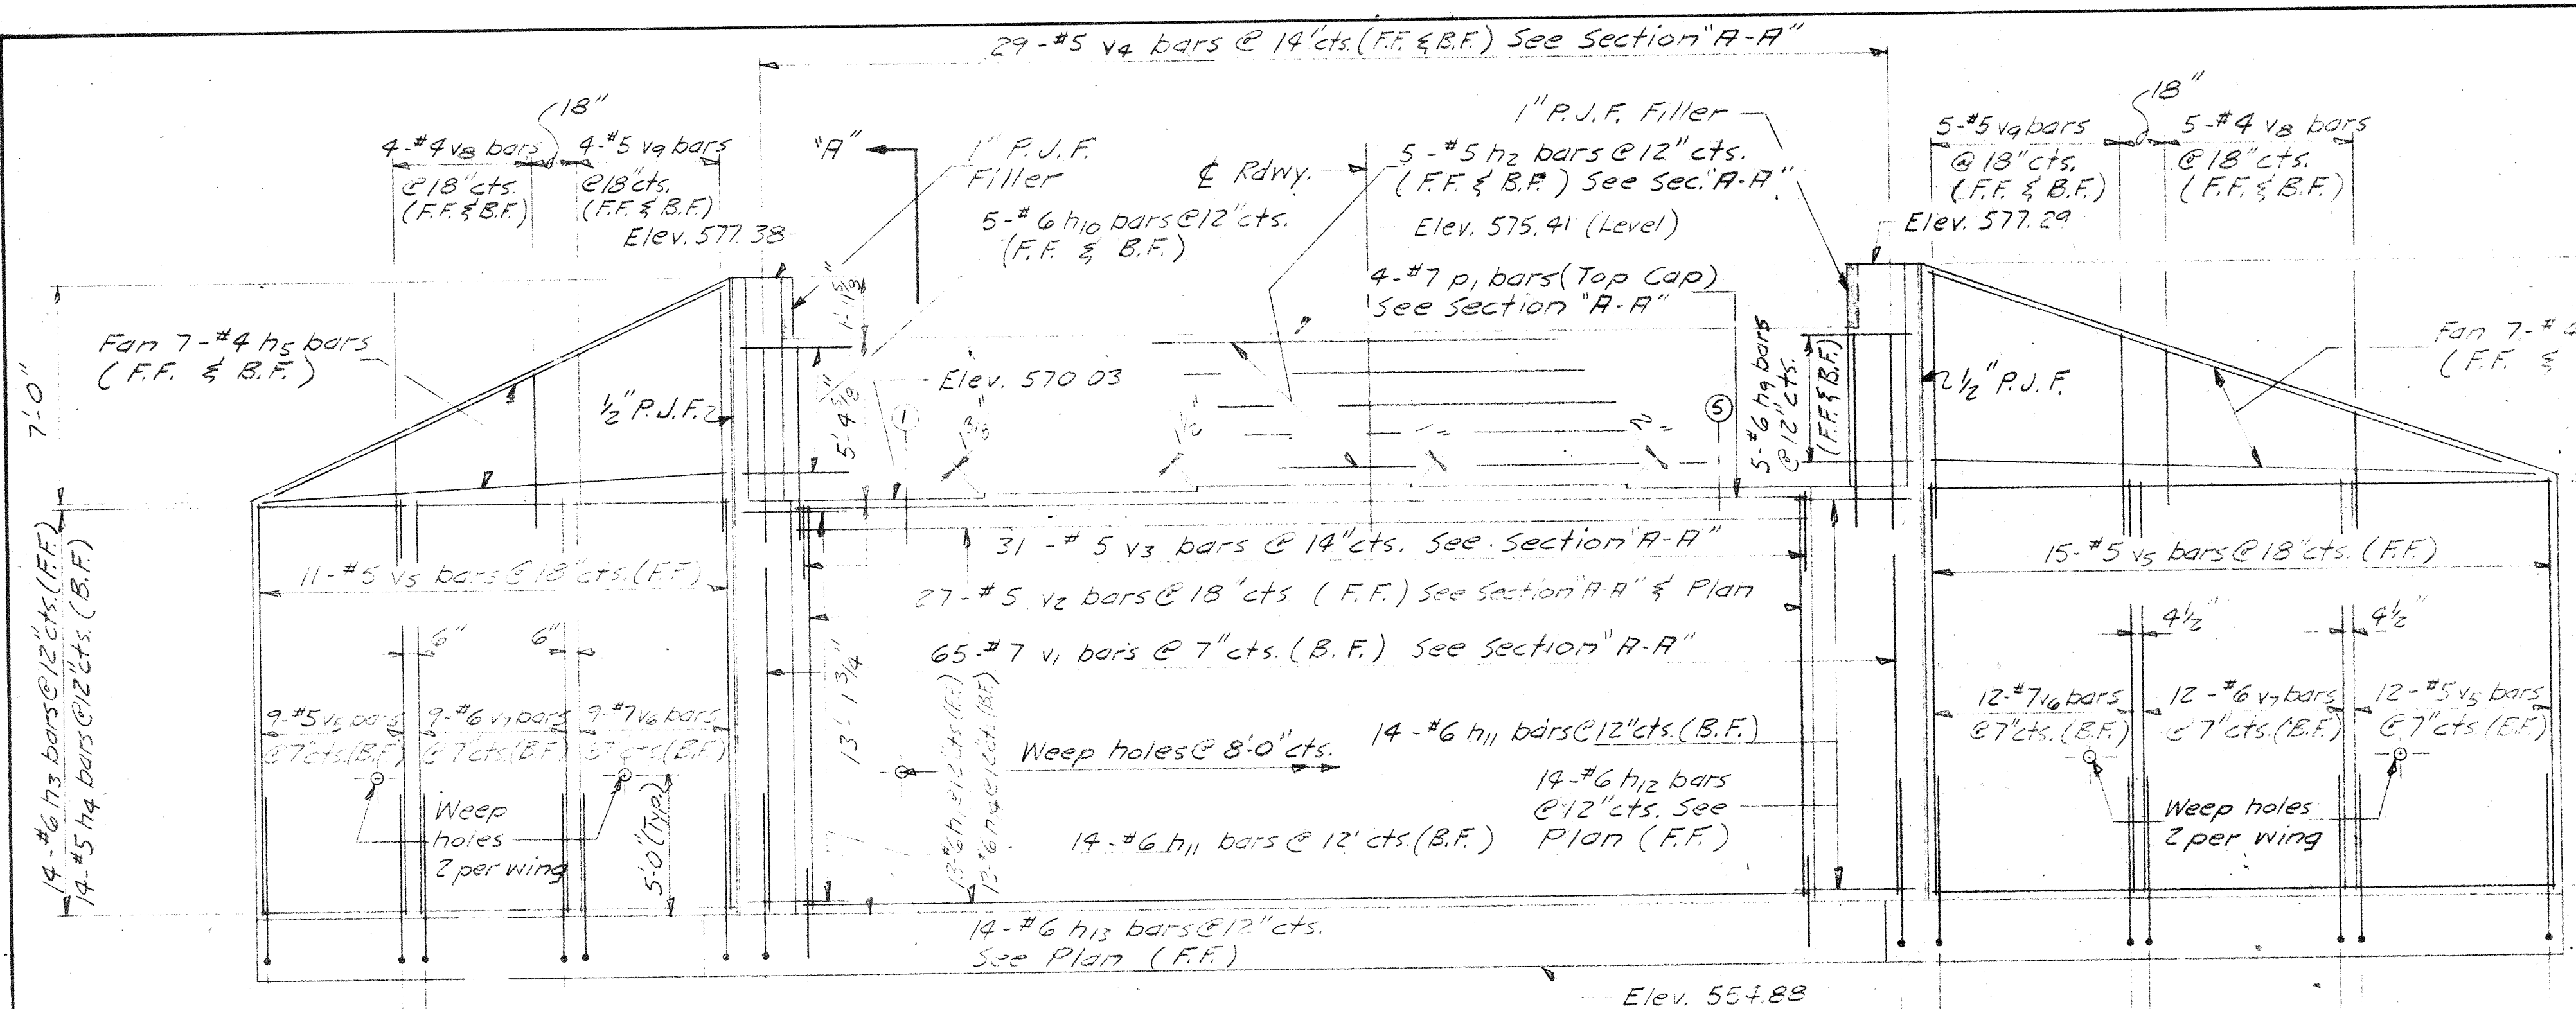 29-#5 v4 bars @ 14"cts.(F.F. & B.F.) See Section "A-A"
18"
4-#4 v8 bars
@18"cts.
(F.F. & B.F.)
4-#5 v9 bars
@18"cts.
(F.F. & B.F.)
Elev. 577.38
"A"
1" P.J.F.
Filler
5-#6 h10 bars @12"cts.
(F.F. & B.F.)
℄ Rdwy.
1" P.J.F. Filler
5-#5 h2 bars @ 12" cts.
(F.F. & B.F.) See Sec. "A-A"
Elev. 575.41 (Level)
4-#7 p1 bars (Top Cap)
See Section "A-A"
18"
5-#5 v9 bars
@ 18"cts.
(F.F. & B.F.)
5-#4 v8 bars
@ 18"cts.
(F.F. & B.F.)
Elev. 577.29
7'-0"
Fan 7-#4 h5 bars
(F.F. & B.F.)
1/2" P.J.F.
5'-4 5/8"
Elev. 570.03
1
1 3/8"
1 1/2"
5
5-#6 h9 bars
@ 12"cts.
(F.F. & B.F.)
1/2" P.J.F.
Fan 7-#
(F.F. &
14-#6 h3 bars @ 12"cts.(F.F.)
14-#5 h4 bars @ 12"cts.(B.F.)
11-#5 v5 bars @ 18"cts.(F.F.)
31-#5 v3 bars @ 14"cts. See Section "A-A"
27-#5 v2 bars @ 18"cts. (F.F.) See Section "A-A" & Plan
65-#7 v1 bars @ 7"cts. (B.F.) See Section "A-A"
15-#5 v5 bars @ 18"cts. (F.F.)
6"
6"
4 1/2"
4 1/2"
9-#5 v5 bars
@ 7"cts.(B.F.)
9-#6 v7 bars
@ 7"cts.(B.F.)
9-#7 v6 bars
cts.(B.F.)
13'-1 3/4"
12-#7 v6 bars
@ 7"cts.(B.F.)
12-#6 v7 bars
@ 7"cts.(B.F.)
12-#5 v5 bars
@ 7"cts.(B.F.)
Weep
holes
2 per wing
5'-0"(Typ.)
Weep holes @ 8'-0"cts.
14-#6 h11 bars @ 12"cts.(B.F.)
14-#6 h12 bars
@ 12"cts. See
Plan (F.F.)
14-#6 h11 bars @ 12" cts.(B.F.)
Weep holes
2 per wing
14-#6 h13 bars @ 12"cts.
See Plan (F.F.)